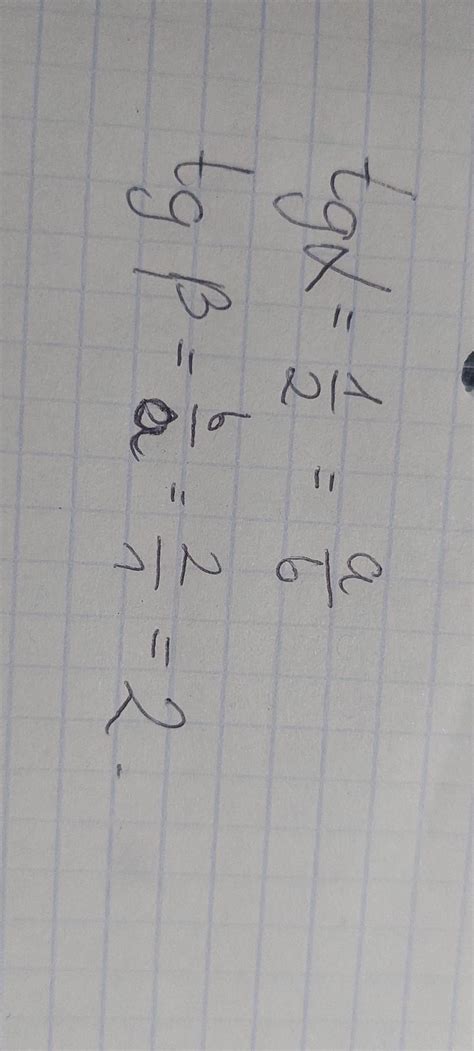 tg α = 1/2 = a/b
tg β = b/a = 2/1 = 2.